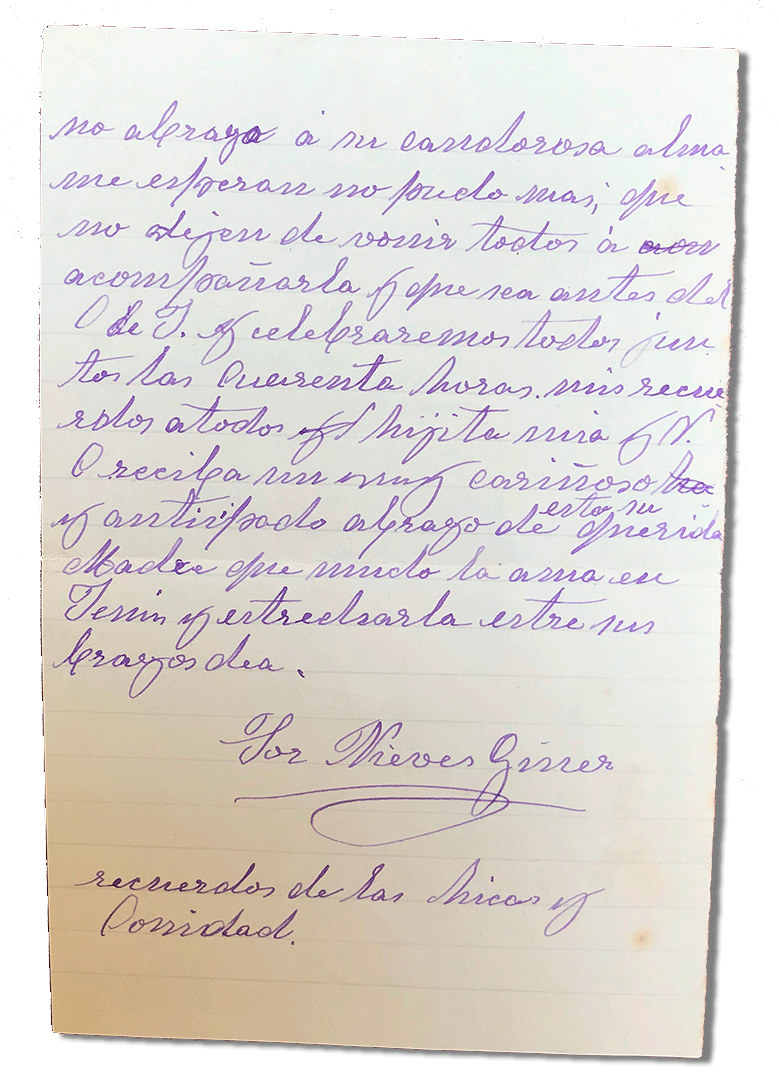 no abrazo á su candorosa alma
me esperan no puedo mas, que
no dejen de venir todos á
acompañarla y que sea antes del
C de J. y celebraremos todos jun
tos las Cuarenta horas. mis recue
rdos atodos y hijita mia y V.
C reciba un muy cariñoso
y anticipado abrazo de esta su querida
Madre que mucho la ama en
Jesús y estrecharla entre sus
brazos dea.
Sor Nieves Giner
recuerdos de las hicas y
Comidad.